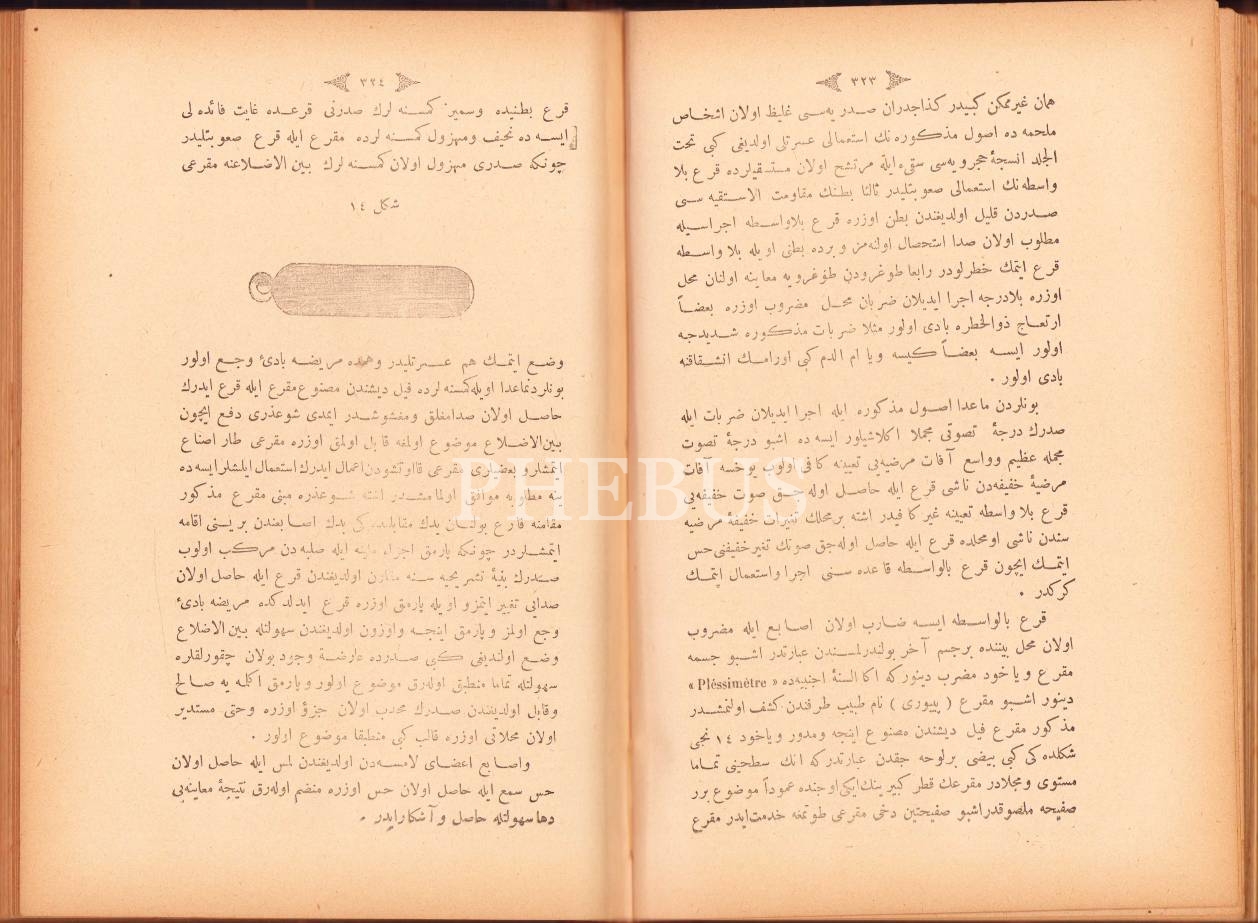 ٣٢٣
همان غير ممكن كبيدر كذا جدران صدريه‌سى غليظ اولان اشخاص
ملحمه ده اصول مذكوره‌نك استعمالى عسرتلى اولديغى كبى تحت
الجلد انسجهٔ حجرويه‌سى سقىء ايله مرتشح اولان مستسقيلرده قرع بلا
واسطه‌نك استعمالى صعوبتليدر ثالثا بطنك مقاومت الاستقيه سى
صدردن قليل اولديغندن بطن اوزره قرع بلاواسطه اجراسيله
مطلوب اولان صدا استحصال اولنه‌مز و برده بطنى اويله بلا واسطه
قرع ايتمك خطرلودر رابعا طوغرودن طوغرويه معاينه اولنان محل
اوزره بلادرجه اجرا ايديلان ضربان محل مضروب اوزره بعضاً
ارتعاج ذوالخطره بادى اولور مثلا ضربات مذكوره شديدجه
اولور ايسه بعضاً كيسه ويا ام الدم كبى اورامك انشقاقنه
بادى اولور .
بونلردن ماعدا اصول مذكوره ايله اجرا ايديلان ضربات ايله
صدرك درجهٔ تصوتى مجملا اكلاشيلور ايسه ده اشبو درجهٔ تصوت
مجمله عظيم وواسع آفات مرضيه‌يى تعيينه كافى اولوب يوخسه آفات
مرضيهٔ خفيفه‌دن ناشى قرع ايله حاصل اوله‌جق صوت خفيفه‌يى
قرع بلا واسطه تعيينه غير كافيدر اشته بر محلك تغيرات خفيفهٔ مرضيه
سندن ناشى اومحلده قرع ايله حاصل اوله‌جق صوتك تغير خفيفنى حس
ايتمك ايچون قرع بالواسطه قاعده سنى اجرا واستعمال ايتمك
كركدر .
قرع بالواسطه ايسه ضارب اولان اصابع ايله مضروب
اولان محل بيننده برجسم آخر بولندرلمسندن عبارتدر اشبو جسمه
مقرع و ياخود مضرب دينور كه اكا السنهٔ اجنبيه‌ده « Pléssimètre »
دينور اشبو مقرع ( پيورى ) نام طبيب طرفندن كشف اولنمشدر
مذكور مقرع فيل ديشندن مصنوع اينجه ومدور و ياخود ١٤ نجى
شكلده كى كبى بيضى بر لوحه جقدن عبارتدر كه انك سطحينى تماما
مستوى و مجلادر مقرعك قطر كبيرينك ايكى اوجنده عموداً موضوع برر
صفيحه ملصوقدر اشبو صفيحتين دخى مقرعى طوتمغه خدمت ايدر مقرع
٣٢٤
قرع بطنيده وسميز كمسنه لرك صدرنى قرعده غايت فائده لى
ايسه ده نحيف ومهزول كمسنه لرده مقرع ايله قرع صعوبتليدر
چونكه صدرى مهزول اولان كمسنه لرك بين الاضلاعنه مقرعى
شكل ١٤
وضع ايتمك هم عسرتليدر وهمده مريضه بادئ وجع اولور
بونلردنماعدا اويله كمسنه لرده فيل ديشندن مصنوع مقرع ايله قرع ايدرك
حاصل اولان صدا مغلق ومغشوشدر ايمدى شوعذرى دفع ايچون
بين‌الاضلاع موضوع اولمغه قابل اولمق اوزره مقرعى طار اصناع
ايتمشلر و بعضيلرى مقرعى قااوتشودن اعمال ايدرك استعمال ايلشلر ايسه ده
ينه مطلوبه موافق اولمامشدر اشته شوعذره مبنى مقرع مذكور
مقامنه قارع بولنان يدك مقابلنده‌كى يدك اصابعندن بريسنى اقامه
ايتمشلردر چونكه پارمق اجزاء لينه ايله صلبه دن مركب اولوب
صدرك بنيهٔ تشريحيه سنه مقارن اولديغندن قرع ايله حاصل اولان
صدايى تغيير ايتمز و اويله پارمق اوزره قرع ايدلدكده مريضه بادئ
وجع اولمز و پارمق اينجه واوزون اولديغندن سهولتله بين‌الاضلاع
وضع اولنديغى كبى صدرده عارضهٔ وجود بولان چقورلقلره
سهولتله تماما منطبق اوله‌رق موضوع اولور و پارمق اكلمه يه صالح
وقابل اولديغندن صدرك محدب اولان جزؤ اوزره وحتى مستدير
اولان محلاتى اوزره قالب كبى منطبقا موضوع اولور .
واصابع اعضاى لامسه‌دن اولديغندن لمس ايله حاصل اولان
حس سمع ايله حاصل اولان حس اوزره منضم اوله‌رق نتيجهٔ معاينه‌يى
دها سهولتله حاصل و آشكار ايدر .
PHEBUS